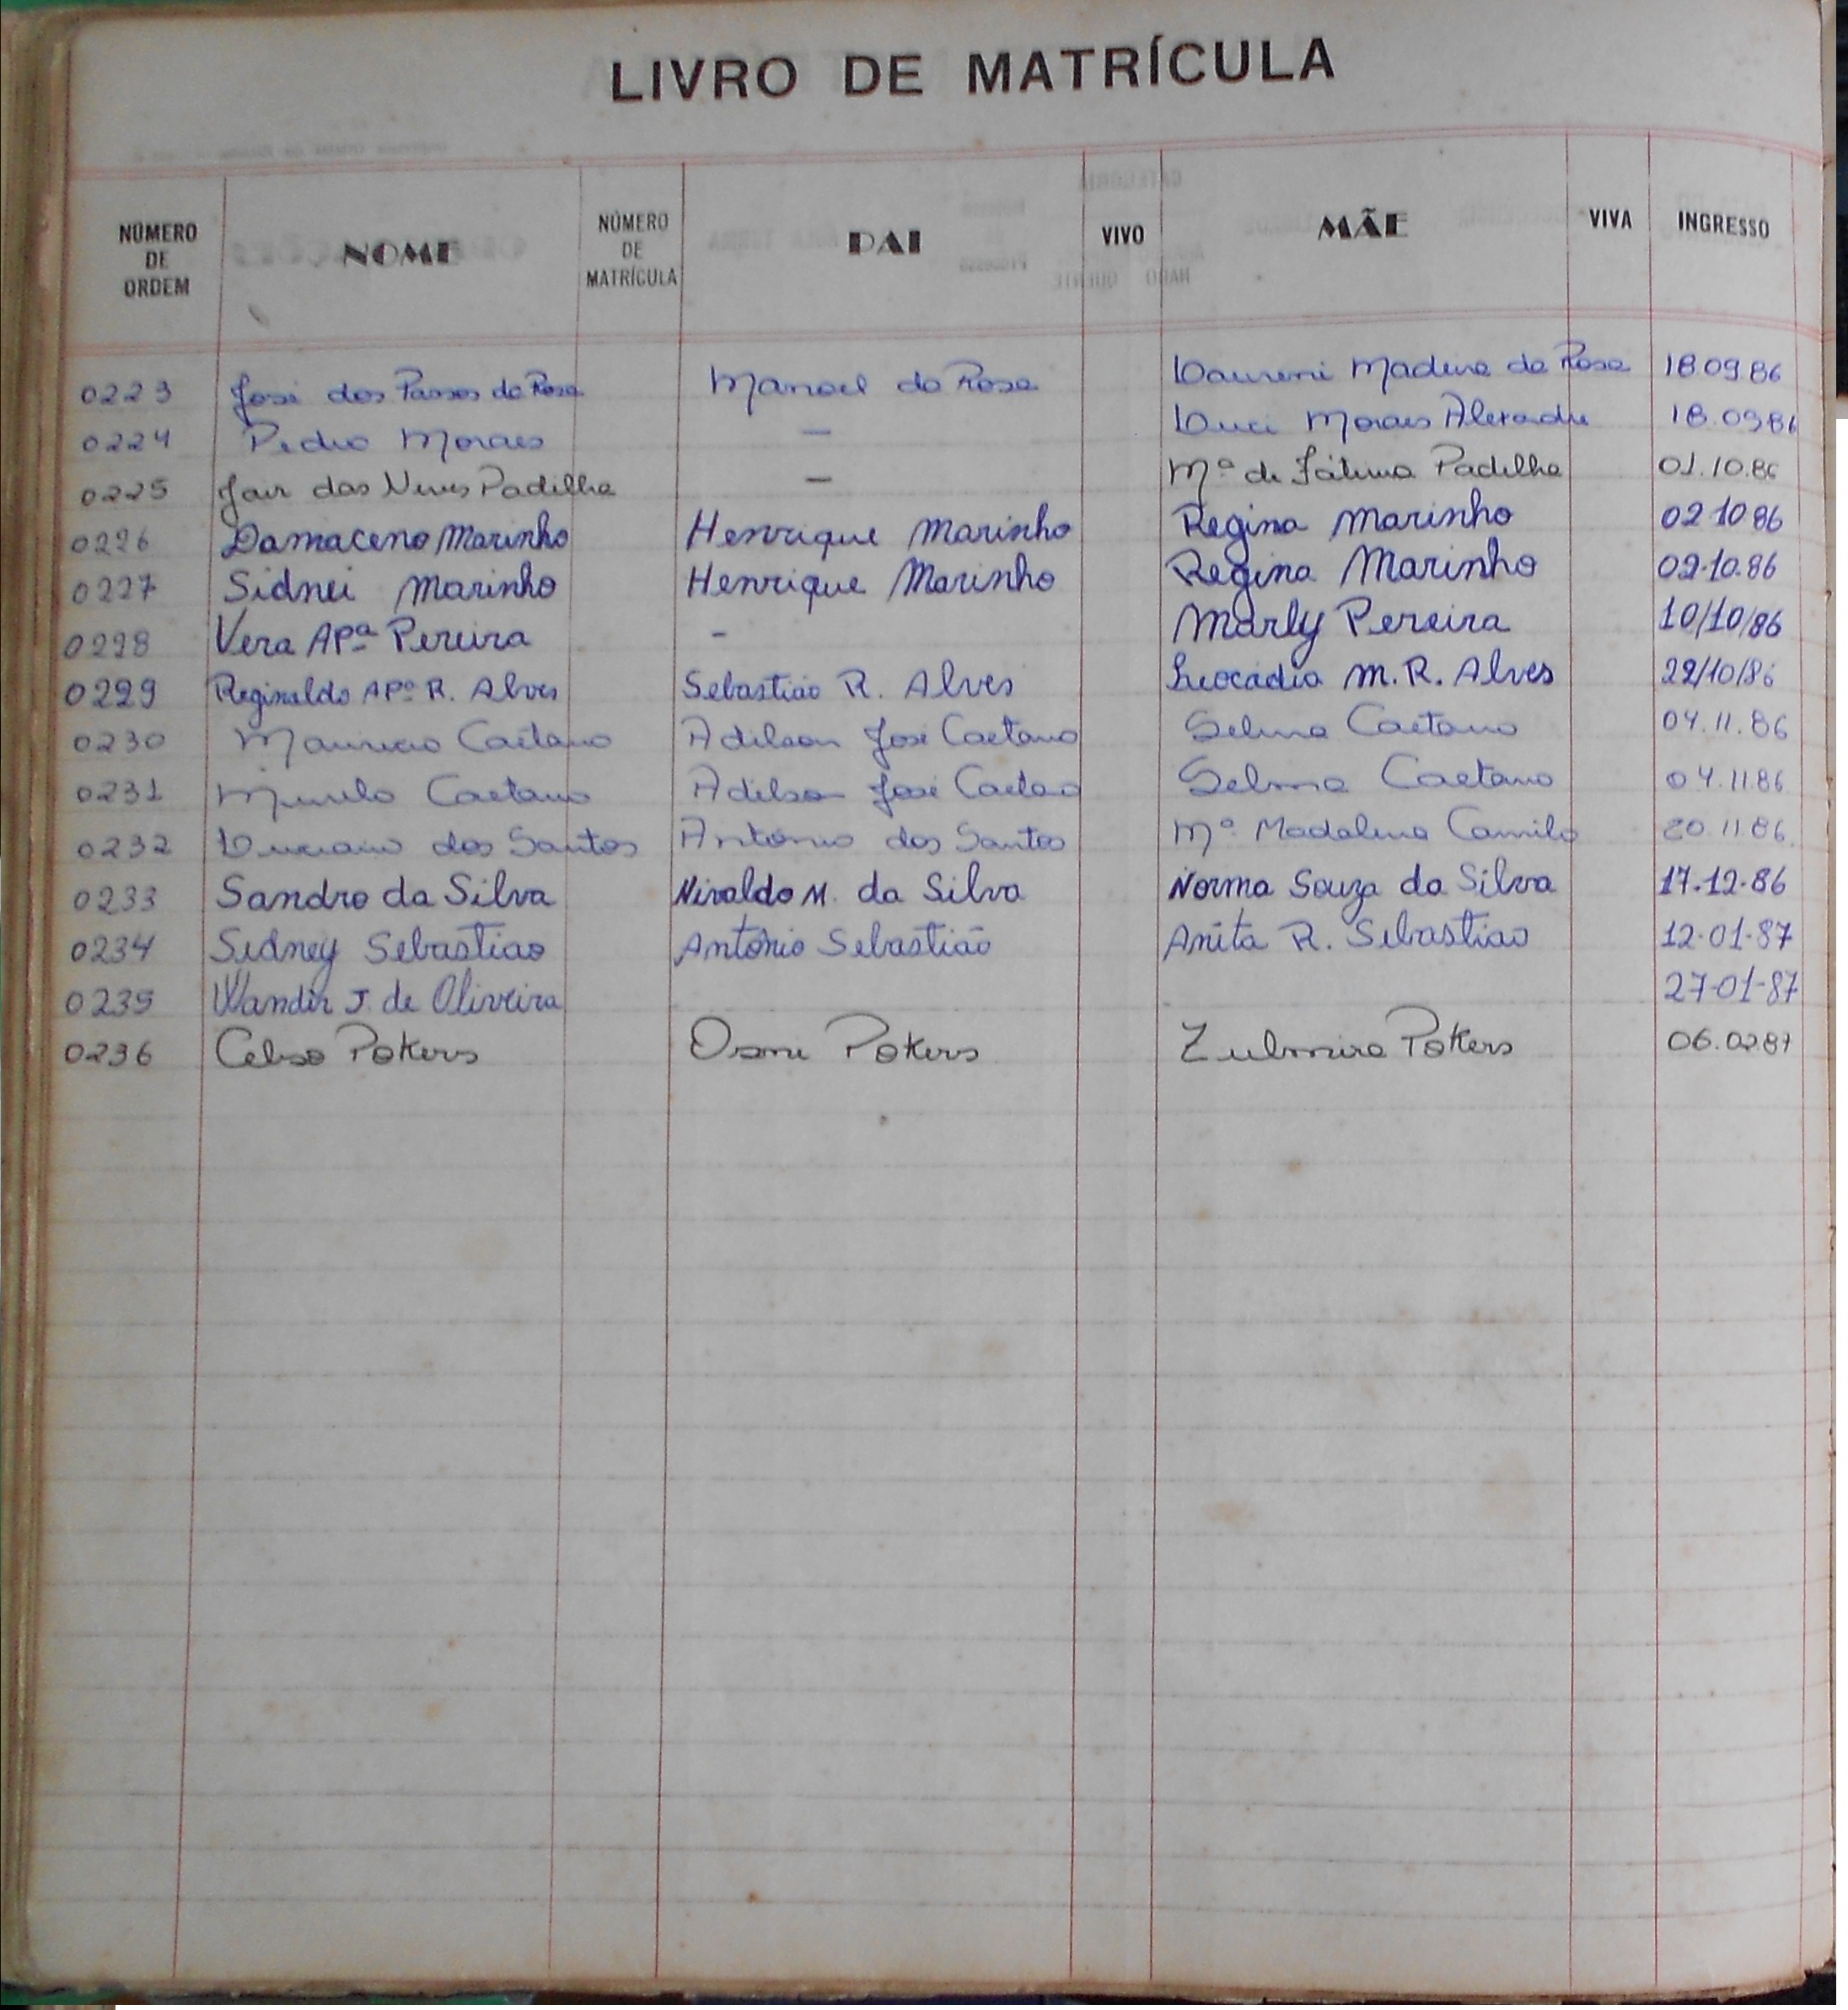 LIVRO DE MATRÍCULA
NÚMERO DE ORDEM NOME NÚMERO DE MATRÍCULA PAI VIVO MÃE VIVA INGRESSO
0223 José dos Passos da Rosa Manoel da Rosa Laureni Madeira da Rosa 18.09.86
0224 Pedro Moraes — Luci Moraes Alexandre 18.09.86
0225 Jair das Neves Padilha — Mª de Fátima Padilha 01.10.86
0226 Damaceno Marinho Henrique Marinho Regina Marinho 02.10.86
0227 Sidnei Marinho Henrique Marinho Regina Marinho 02.10.86
0228 Vera Apª Pereira - Marly Pereira 10/10/86
0229 Reginaldo Apº R. Alves Sebastião R. Alves Leocádia M. R. Alves 22/10/86
0230 Mauricio Caetano Adilson José Caetano Selma Caetano 04.11.86
0231 Murilo Caetano Adilson José Caetano Selma Caetano 04.11.86
0232 Luciano dos Santos Antônio dos Santos Mª Madalena Camilo 20.11.86.
0233 Sandro da Silva Nivaldo M. da Silva Norma Souza da Silva 17.12.86
0234 Sidney Sebastiao Antônio Sebastião Anita R. Sebastiao 12-01-87
0235 Wandir J. de Oliveira 27-01-87
0236 Celso Pokers Osni Pokers Zulmira Pokers 06.02.87